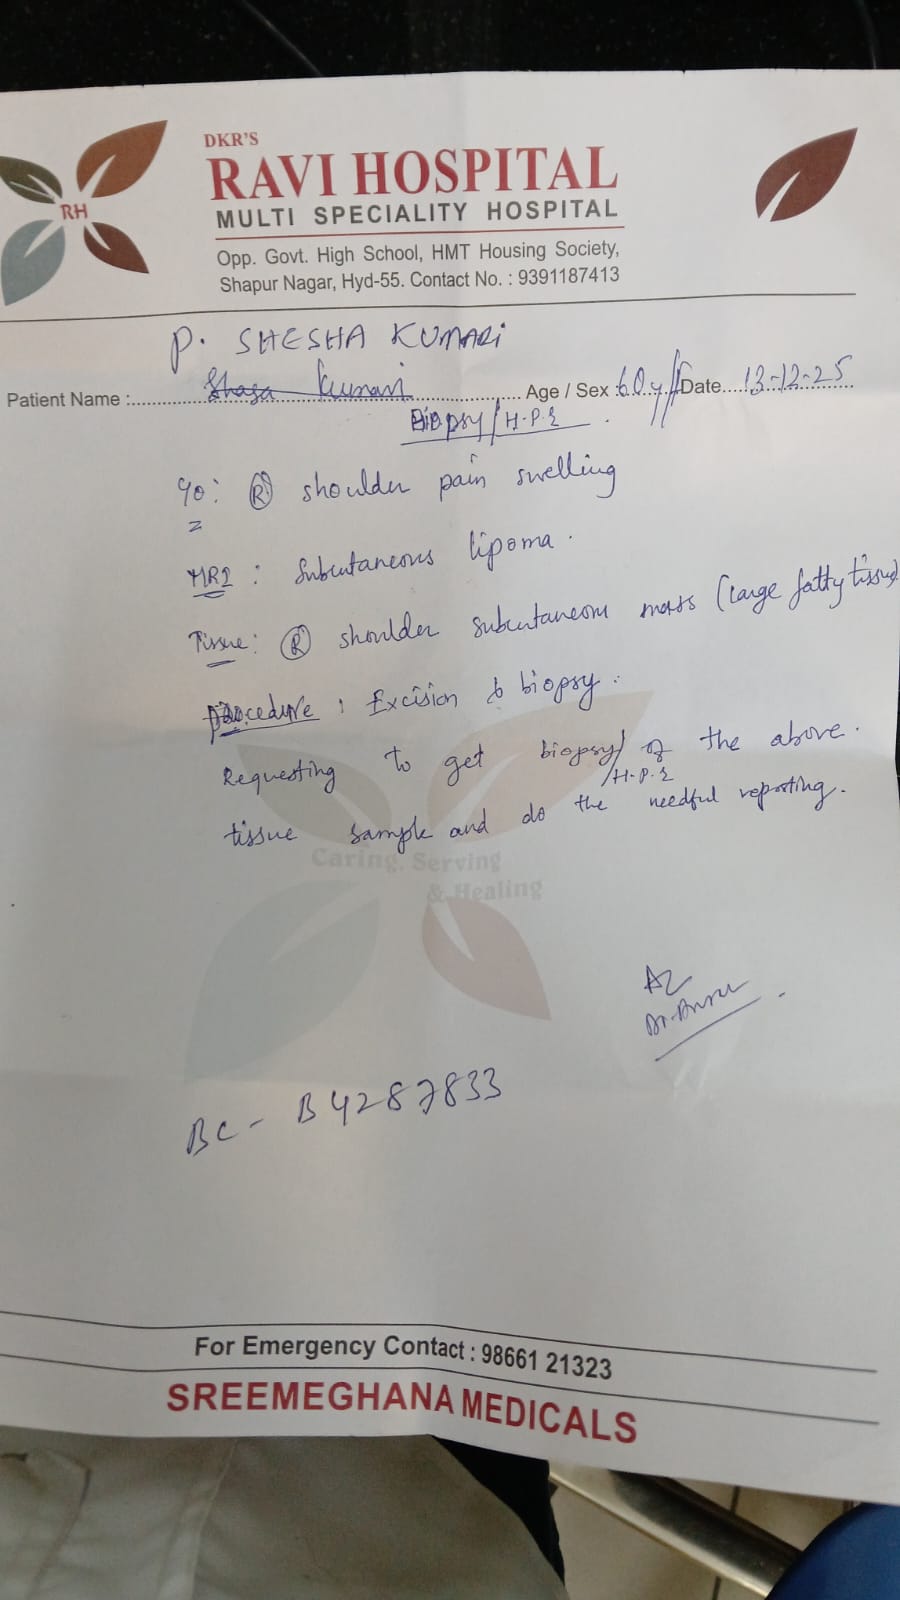 DKR'S
RAVI HOSPITAL
RH
MULTI SPECIALITY HOSPITAL
Opp. Govt. High School, HMT Housing Society,
Shapur Nagar, Hyd-55. Contact No. : 9391187413
P. SHESHA KUMARI
Patient Name :.......... Shasa Kumari .......... Age / Sex 60y/F Date.... 13-12-25
Biopsy/H.P.E
C/o: (R) shoulder pain swelling
MRI : Subcutaneous lipoma.
Tissue: (R) shoulder subcutaneous mass (large fatty tissue)
procedure : Excision & biopsy.
Requesting to get biopsy/H.P.E of the above.
tissue sample and do the needful reporting.
Caring, Serving
& Healing
BC - B4287833
For Emergency Contact : 98661 21323
SREEMEGHANA MEDICALS